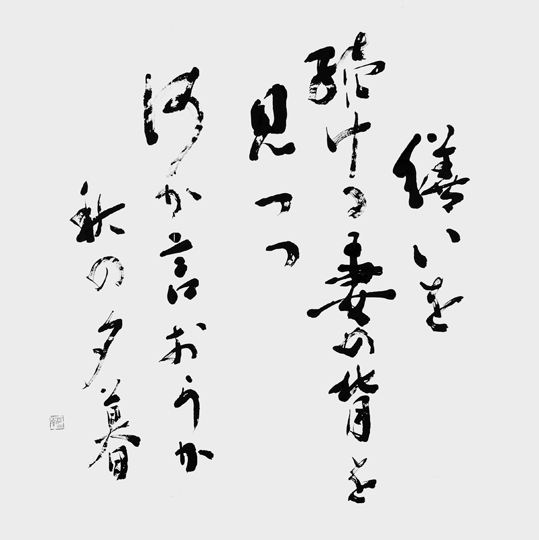 繕いを
続ける妻の背を
見つつ
何か言おうか
秋の夕暮